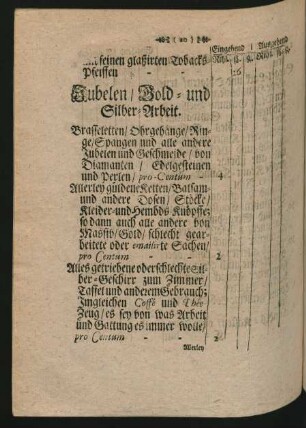 Eingehend | Ausgehend
Rthl. ſl. g. Rthl. ſl. g.
feinen glaßirten Tobacks
Pfeiffen - - 16
Jubelen / Gold- und
Silber-Arbeit.
Braſſeletten / Ohrgehänge / Rin-
ge / Spangen und alle andere
Jubelen und Geſchmeide / von
Diamanten / Edelgeſteinen
und Perlen / pro Centum - 4
Allerley güldene Ketten / Balſam
und andere Doſen / Stöcke /
Kleider- und Hembds Knöpffe:
ſo dann auch alle andere von
Maſſiv / Gold / ſchlecht gear-
beitete oder emaillirte Sachen /
pro Centum - - 2
Alles getriebene oder ſchlechte Sil-
ber-Geſchirr zum Zimmer /
Taffel und anderem Gebrauch;
Imgleichen Coffé und Thee
Zeug / es ſey von was Arbeit
und Gattung es immer wolle /
pro Centum - - 2
Allerley